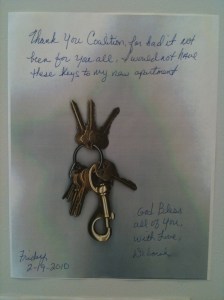 Thank You Coalition, for had it not
been for you all, I would not have
these keys to my new apartment
God Bless
all of you,
With Love,
Friday
2-19-2010